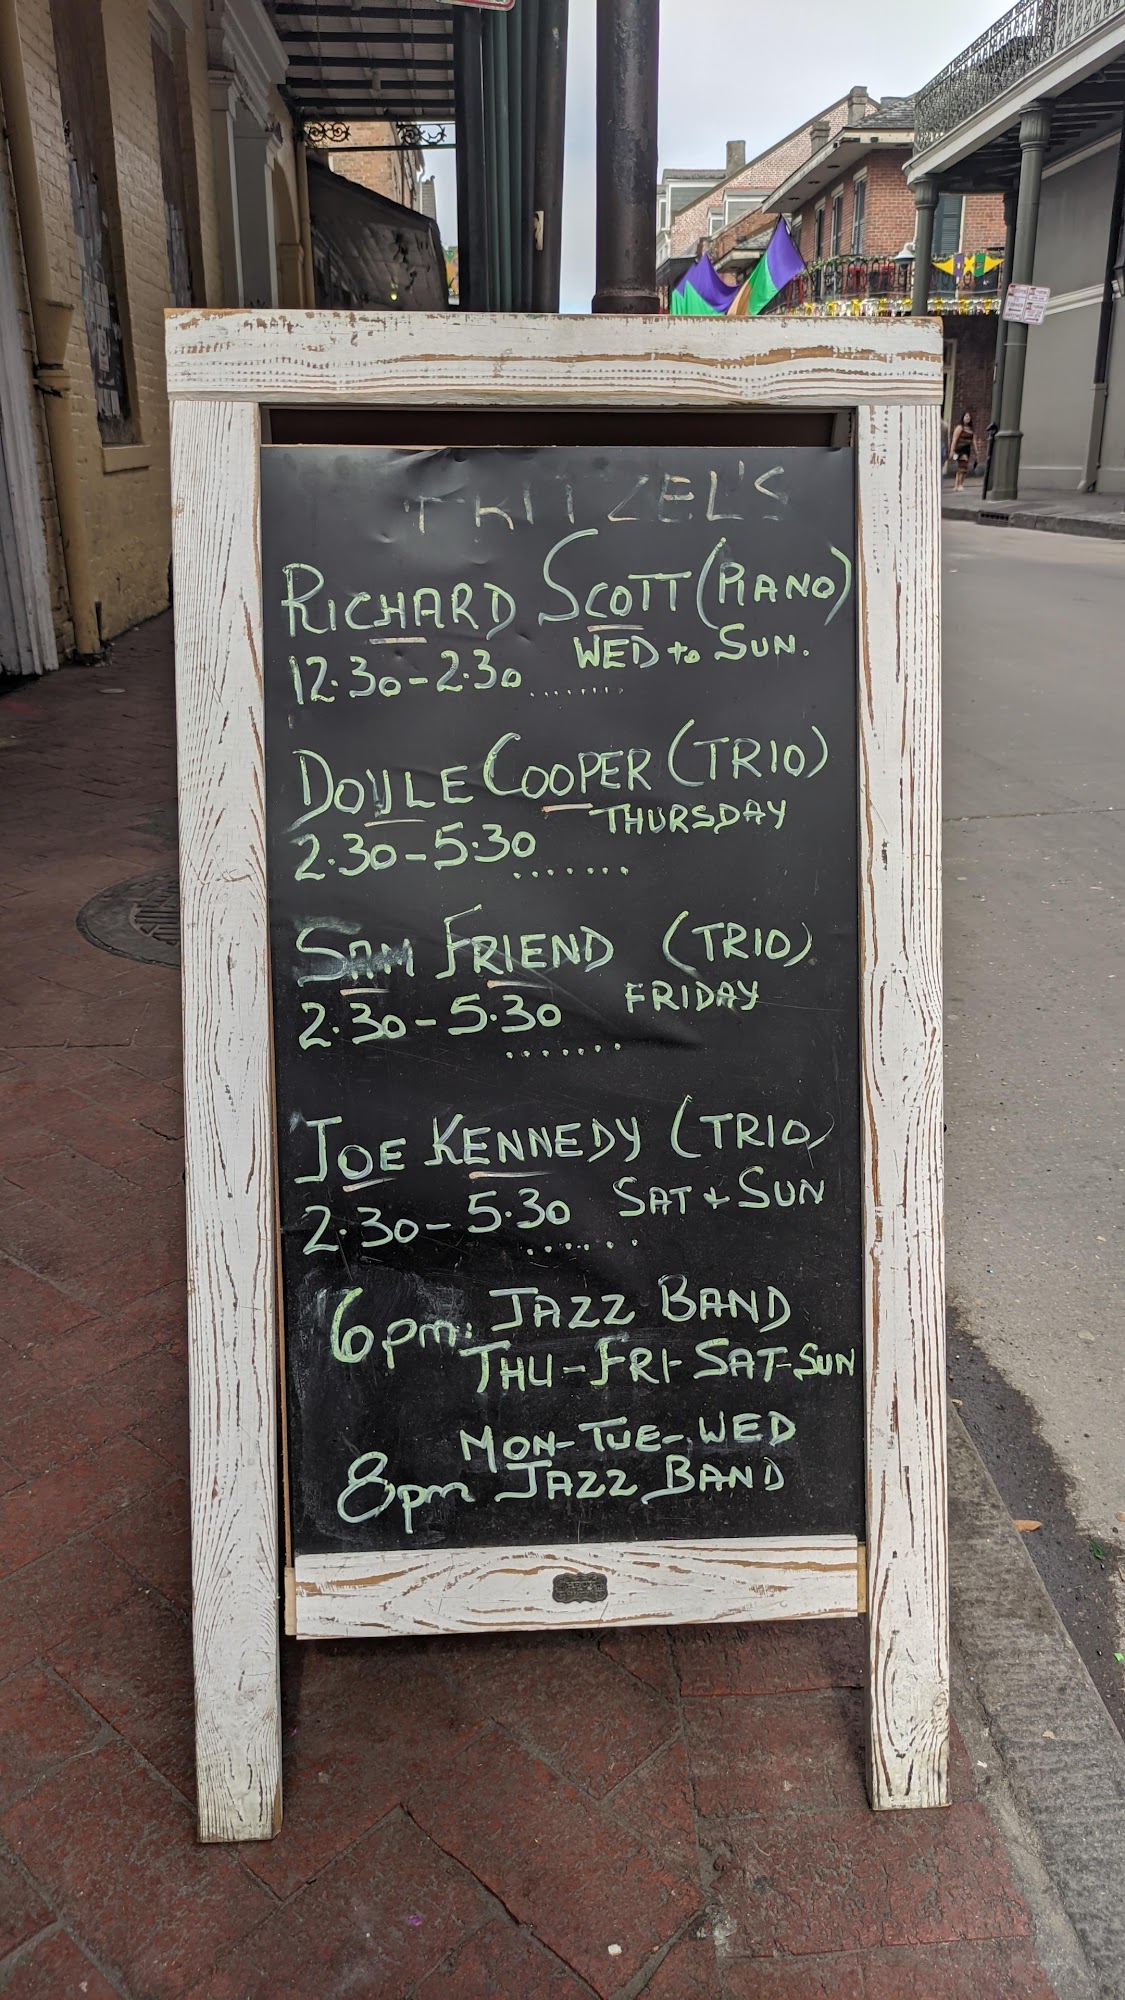 FRITZEL'S
RICHARD SCOTT (PIANO)
12.30-2.30 ........ WED to SUN.
DOYLE COOPER (TRIO)
2.30-5.30 ....... THURSDAY
SAM FRIEND (TRIO)
2.30-5.30 ....... FRIDAY
JOE KENNEDY (TRIO)
2.30-5.30 ....... SAT + SUN
6pm: JAZZ BAND
THU-FRI-SAT-SUN
MON-TUE-WED
8pm JAZZ BAND